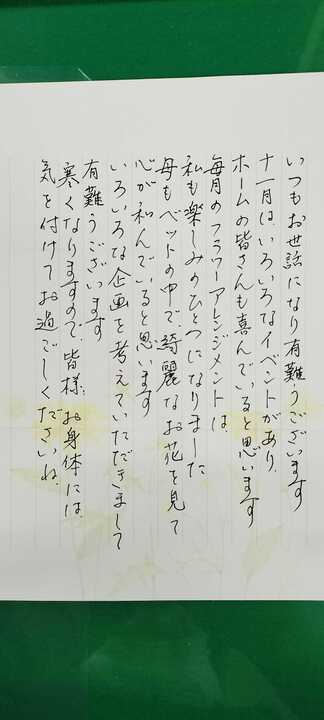 いつもお世話になり有難うございます
十一月は、いろいろなイベントがあり、
ホームの皆さんも喜んでいると思います
毎月のフラワーアレンジメントは
私も楽しみのひとつになりました
母もベットの中で、綺麗なお花を見て
心が和んでいると思います
いろいろな企画を考えていただきまして
有難うございます
寒くなりますので、皆様、お身体には、
気を付けてお過ごしくださいね。